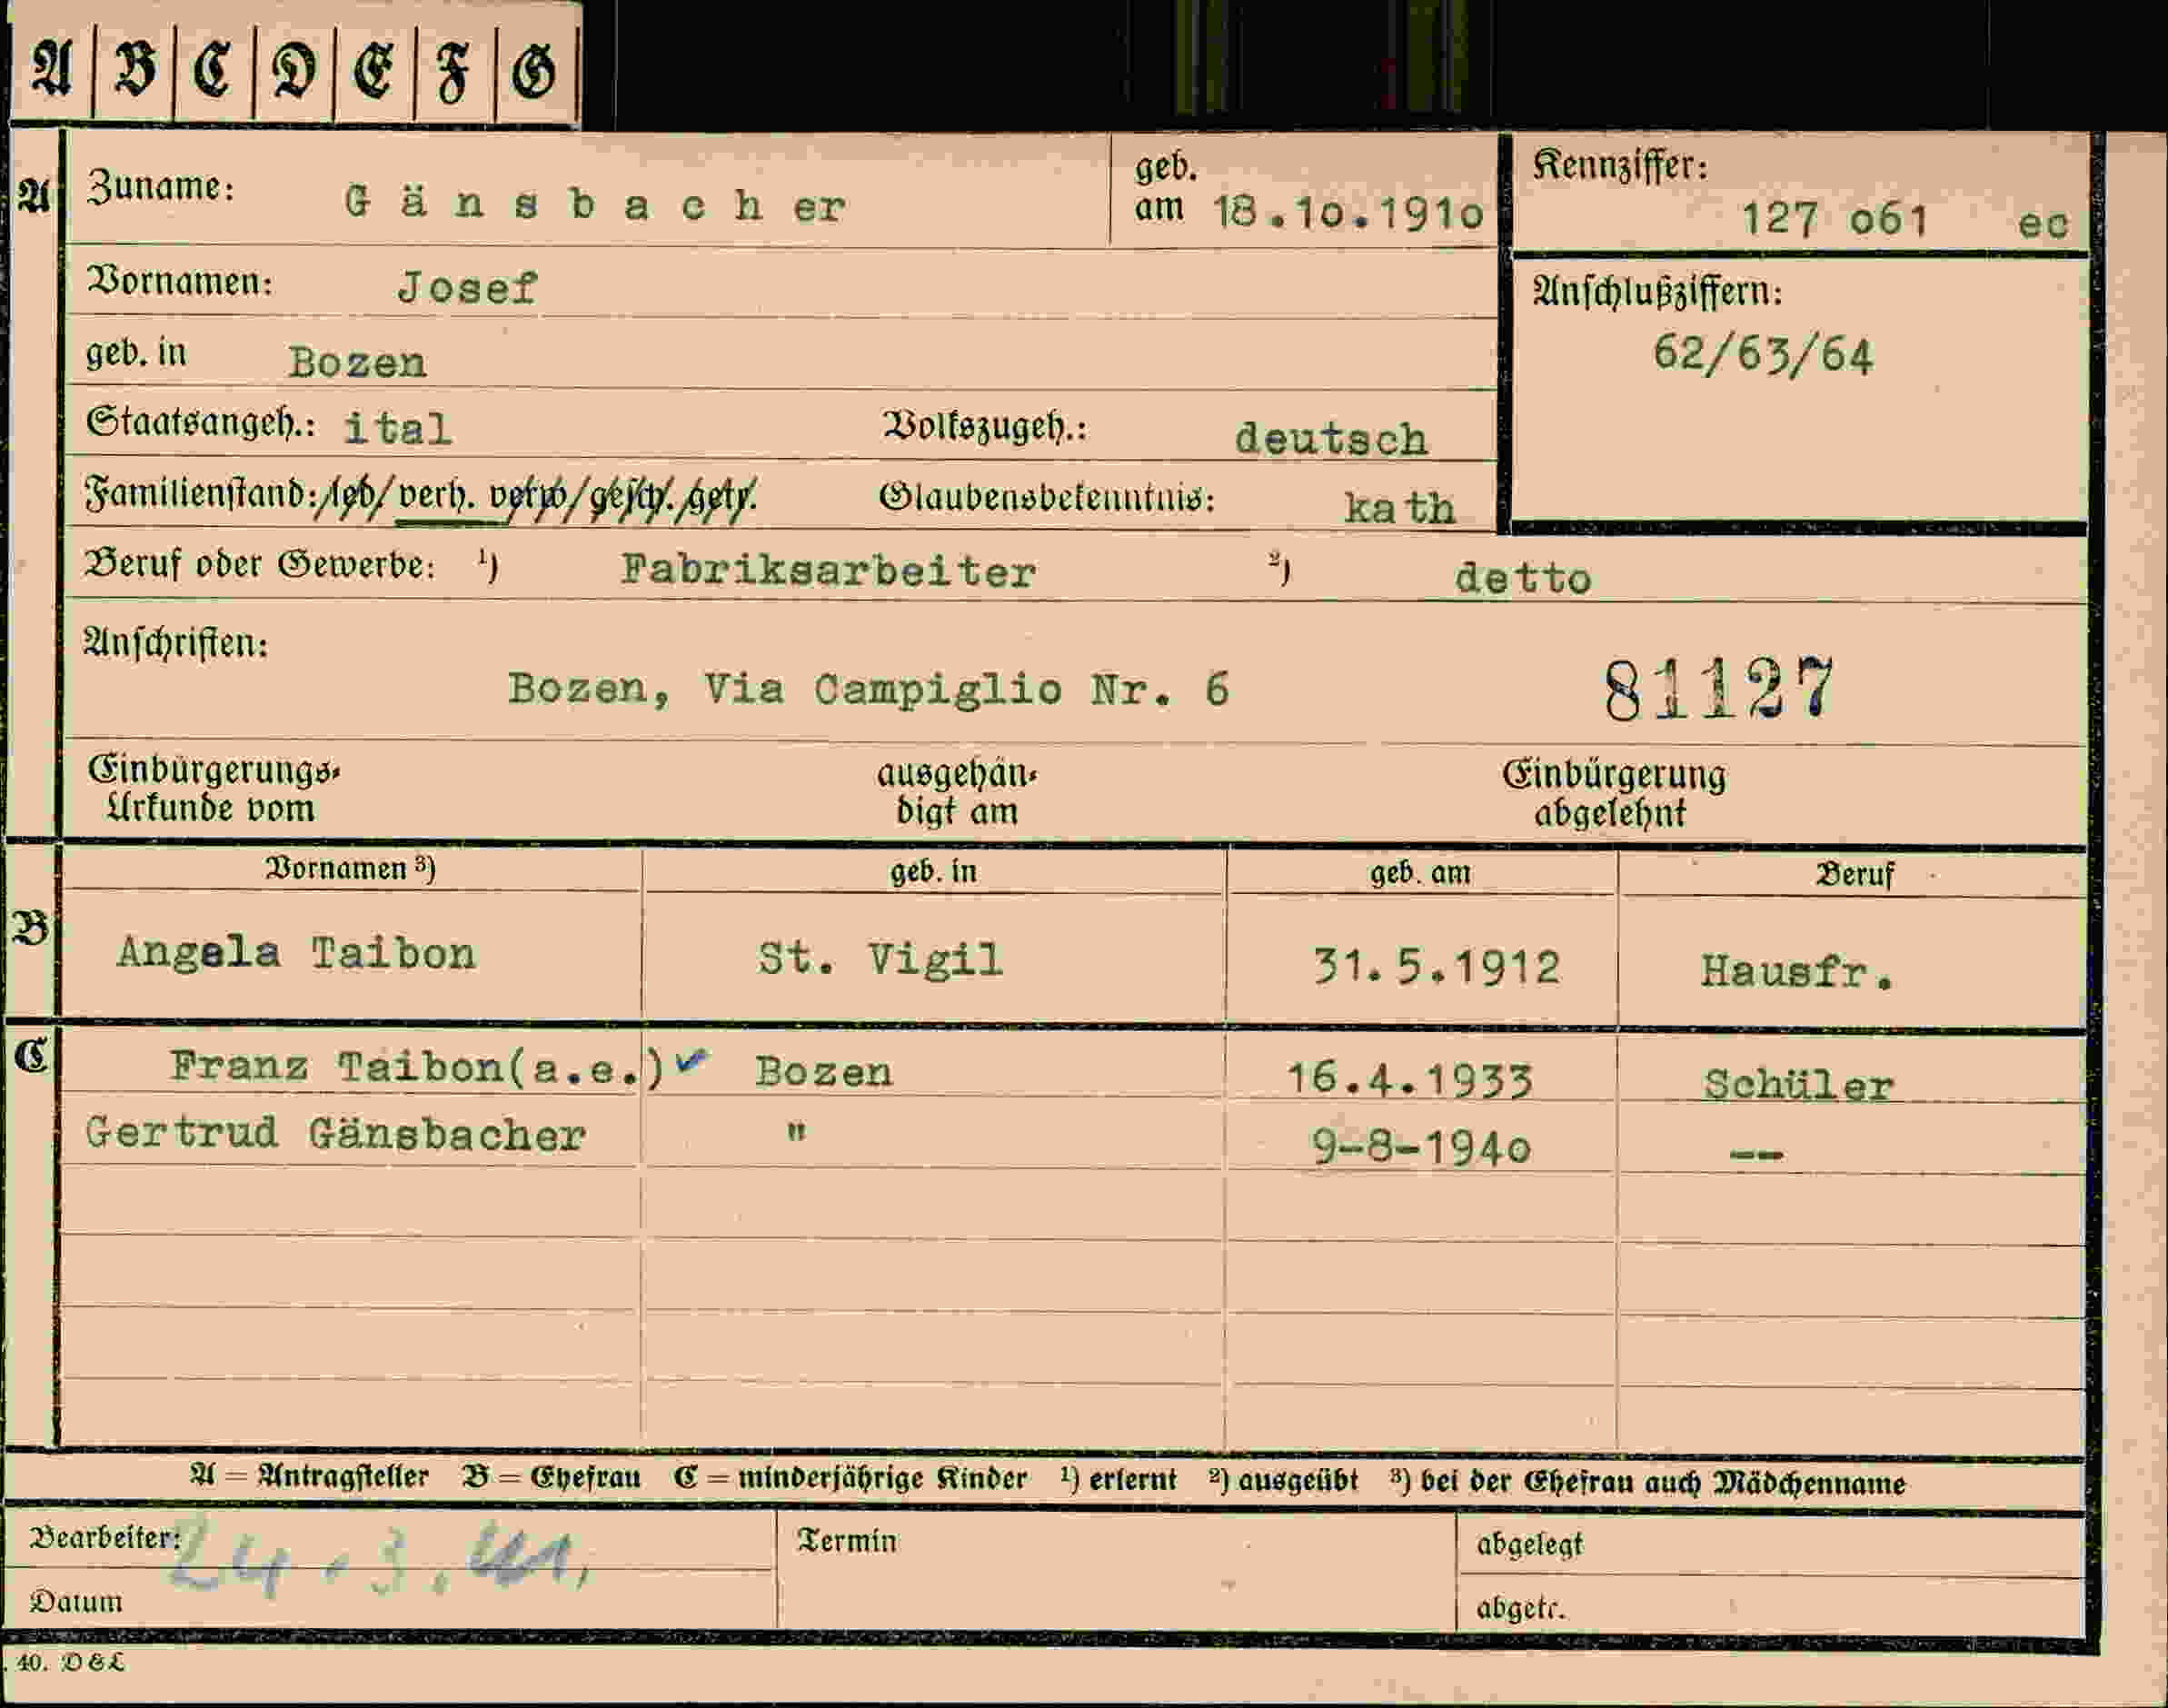 A B C D E F G
A Zuname: Gänsbacher geb. am 18.10.1910 Kennziffer: 127 061 ec
Vornamen: Josef Anschlußziffern:
geb. in Bozen 62/63/64
Staatsangeh.: ital Volkszugeh.: deutsch
Familienstand: led/verh. verw/gesch. getr. Glaubensbekenntnis: kath
Beruf oder Gewerbe: ¹) Fabriksarbeiter ²) detto
Anschriften:
Bozen, Via Campiglio Nr. 6 81127
Einbürgerungs- ausgehän- Einbürgerung
Urkunde vom digt am abgelehnt
Vornamen ³) geb. in geb. am Beruf
B Angela Taibon St. Vigil 31.5.1912 Hausfr.
C Franz Taibon(a.e.) Bozen 16.4.1933 Schüler
Gertrud Gänsbacher " 9-8-1940 --
A = Antragsteller B = Ehefrau C = minderjährige Kinder ¹) erlernt ²) ausgeübt ³) bei der Ehefrau auch Mädchenname
Bearbeiter: 24.3.41. Termin abgelegt
Datum abgetr.
40. D&L